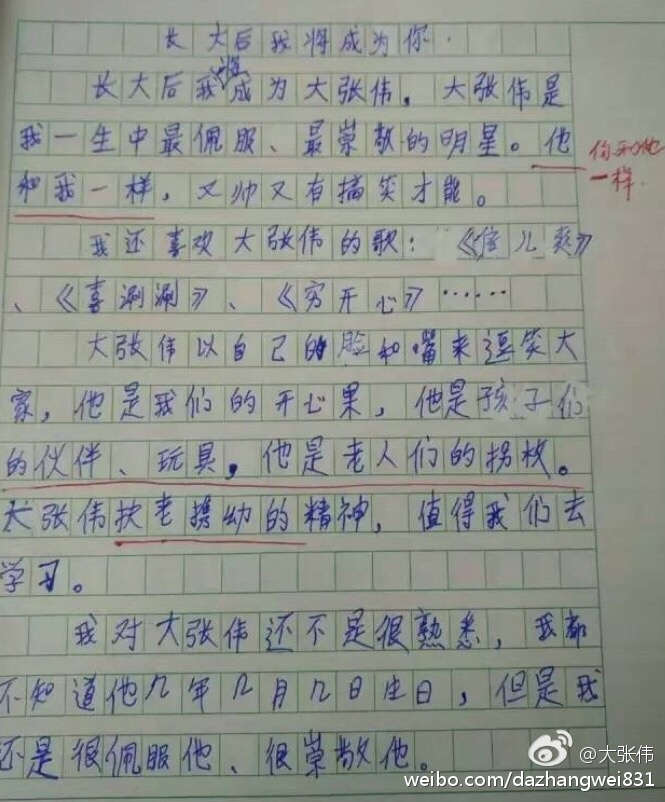 长大后我将成为你.
长大后我将成为大张伟。大张伟是
我一生中最佩服、最崇敬的明星。他
和我一样，又帅又有搞笑才能。
你和他
一样.
我还喜欢大张伟的歌：《倍儿爽》
、《喜唰唰》、《穷开心》……
大张伟以自己的脸和嘴来逗笑大
家，他是我们的开心果，他是孩子们
的伙伴、玩具，他是老人们的拐杖。
大张伟扶老携幼的精神，值得我们去
学习。
我对大张伟还不是很熟悉，我都
不知道他几年几月几日生日，但是我
还是很佩服他、很崇敬他。
@大张伟
weibo.com/dazhangwei831